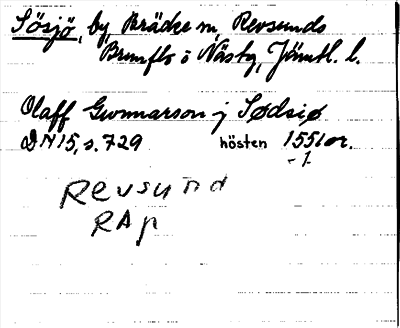 Sösjö, by Bräcke sn, Revsunds
Brunflo o Näs tg, Jämtl. l.
Olaff Gwnnarson j Sødsiø
DN 15, s. 729 hösten 1551 or.
-1
Revsund
RAp